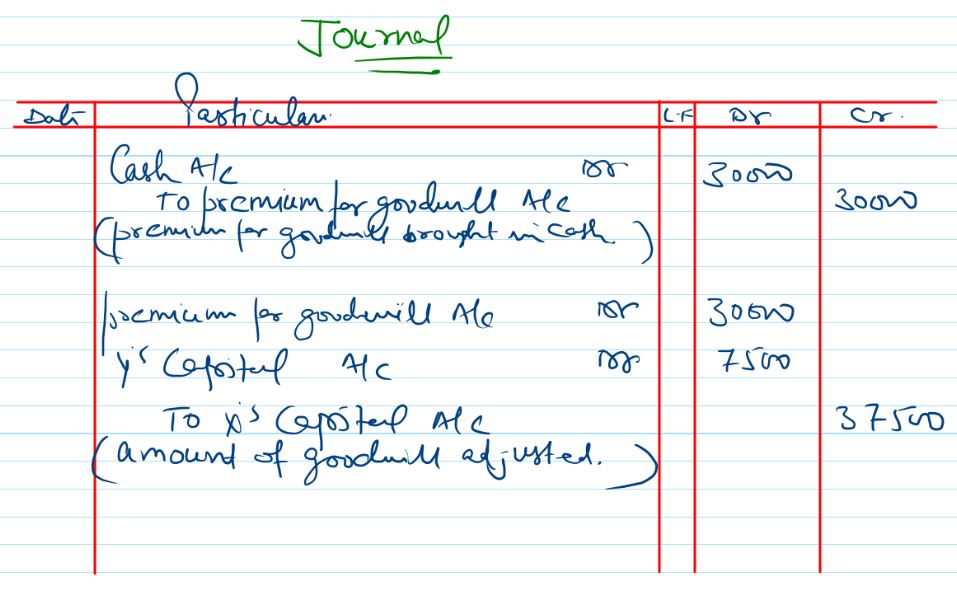 Journal
Date Particulars L.F Dr Cr.
Cash A/c Dr 30000
To premium for goodwill A/c 30000
(premium for goodwill brought in cash)
premium for goodwill A/c Dr 30000
Y's Capital A/c Dr. 7500
To X's Capital A/c 37500
(amount of goodwill adjusted.)